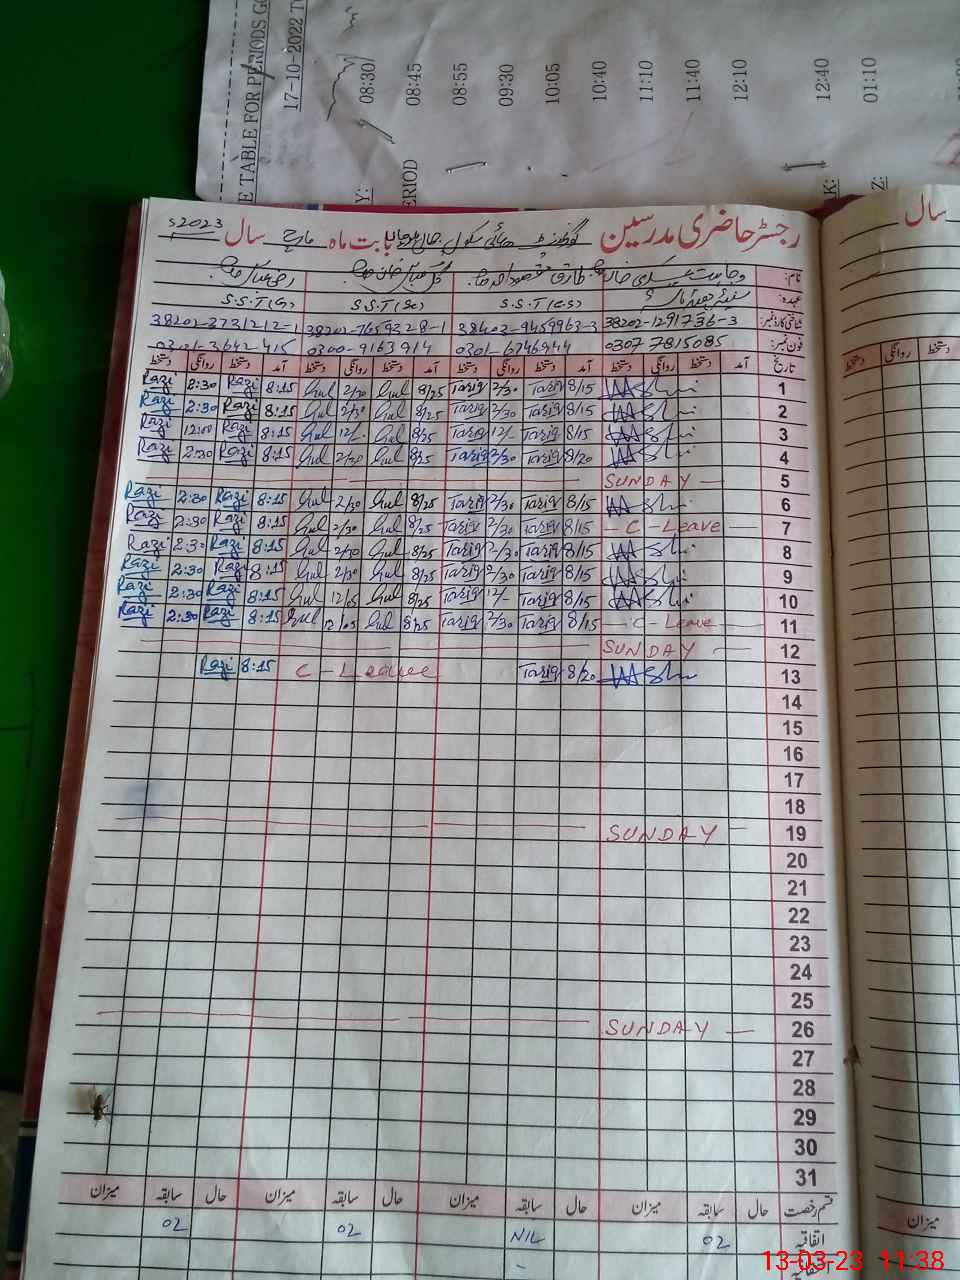 E TABLE FOR PERIODS G
17-10-2022 T
08:30
08:45
08:55
09:30
10:05
10:40
11:10
11:40
12:10
12:40
01:10
Y:
ERIOD
K:
Z:
رجسٹر حاضری مدرسین گورنمنٹ ہائی سکول بابت ماہ مارچ سال 2023
سال
نام:
عہدہ: S.S.T (C.S) S.S.T (Sc) S.S.T (G)
شناختی کارڈ نمبر: 38202-1291736-3 38402-9459963-3 38202-7659328-1 38202-3731212-1
فون نمبر: 0307 7815085 0301-6746944 0300-9163914 0301-3642-415
تاریخ آمد دستخط روانگی دستخط آمد دستخط روانگی دستخط آمد دستخط روانگی دستخط آمد دستخط روانگی دستخط
دستخط روانگی دستخط
1 8/15 Tariq 2/30 Tariq 8/25 Gul 2/30 Gul 8:15 Razi 2:30 Razi
2 8/15 Tariq 2/30 Tariq 8/25 Gul 2/30 Gul 8:15 Razi 2:30 Razi
3 8/15 Tariq 12/- Tariq 8/25 Gul 12/- Gul 8:15 Razi 12:00 Razi
4 8/20 Tariq 2/30 Tariq 8/25 Gul 2/30 Gul 8:15 Razi 2:30 Razi
5 SUNDAY
6 8/15 Tariq 2/30 Tariq 8/25 Gul 2/30 Gul 8:15 Razi 2:30 Razi
7 C-Leave 8/15 Tariq 2/30 Tariq 8/25 Gul 2/30 Gul 8:15 Razi 2:30 Razi
8 8/15 Tariq 2/30 Tariq 8/25 Gul 2/30 Gul 8:15 Razi 2:30 Razi
9 8/15 Tariq 2/30 Tariq 8/25 Gul 2/30 Gul 8:15 Razi 2:30 Razi
10 8/15 Tariq 12/- Tariq 8/25 Gul 12/05 Gul 8:15 Razi 2:30 Razi
11 C-Leave 8/15 Tariq 2/30 Tariq 8/25 Gul 12/05 Gul 8:15 Razi 2:30 Razi
12 SUNDAY
13 8/20 Tariq C-Leavee 8:15 Razi
14
15
16
17
18
19 SUNDAY
20
21
22
23
24
25
26 SUNDAY
27
28
29
30
31
قسم رخصت حال سابقہ میزان حال سابقہ میزان حال سابقہ میزان حال سابقہ میزان
میزان
اتفاقیہ 02 NIL 02 02
13-03-23 11:38